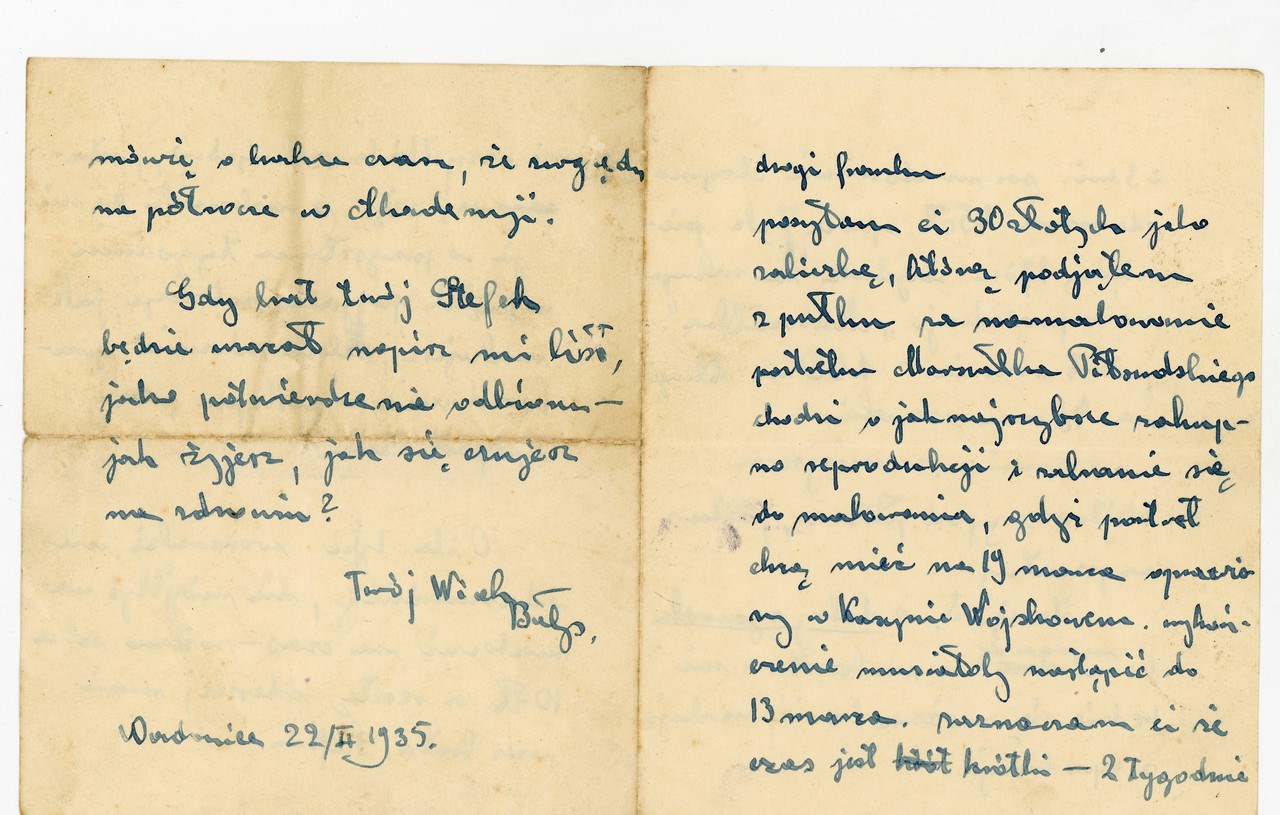 drogi Franku
posyłam ci 30 złotych jako
zaliczkę, którą podjąłem
z pułku za namalowanie
portretu Marszałka Piłsudskiego
chodzi o jaknajszybsze zakup-
no reprodukcji i zabranie się
do malowania, gdyż portret
chcą mieć na 19 marca oprawio-
ny w Kasynie Wojskowem. wykoń-
czenie musiałoby nastąpić do
13 marca. zaznaczam ci że
czas jest krótki — 2 tygodnie
mówię o brak czasu, że względu
na półrocze w Akademji.
Gdy brat twój Stefek
będzie wracał napisz mi list,
jako potwierdzenie odbioru —
jak żyjesz, jak się czujesz
na zdrowiu?
Twój Wicek
Bałys.
Wadowice 22/II 1935.